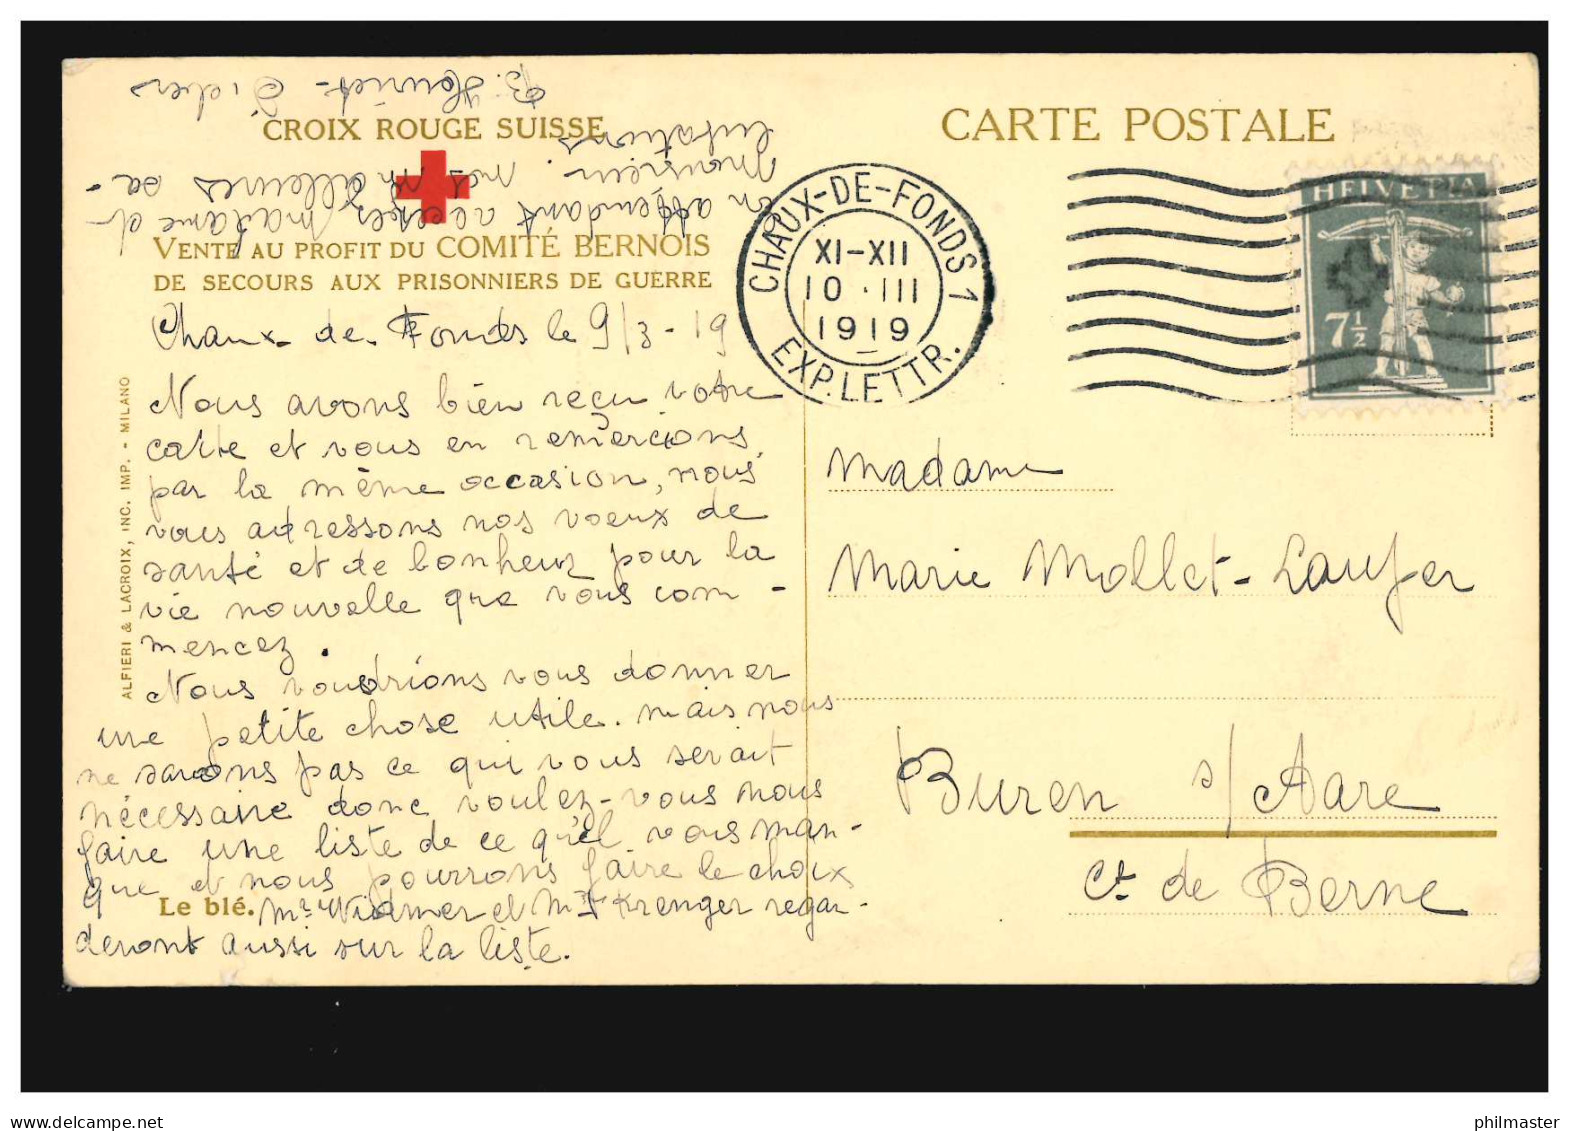 CROIX ROUGE SUISSE
VENTE AU PROFIT DU COMITÉ BERNOIS
DE SECOURS AUX PRISONNIERS DE GUERRE
CARTE POSTALE
CHAUX-DE-FONDS 1
XI-XII
10 · III
1919
EXP. LETTR.
HELVETIA
7½
Chaux-de-Fonds le 9/3-19
Nous avons bien reçu votre
carte et vous en remercions
par la même occasion, nous
vous adressons nos voeux de
santé et de bonheur pour la
vie nouvelle que vous com-
mencez.
Nous voudrions vous donner
une petite chose utile. mais nous
ne savons pas ce qui vous serait
nécessaire donc voulez-vous nous
faire une liste de ce qu'el vous man-
que et nous pourrons faire le choix
Le blé.
Mr. Widmer et Krenger regar-
deront aussi sur la liste.
en attendant acceptez madame et
Monsieur nos meilleures sa-
lutations
B. Houriet-Sieber
ALFIERI & LACROIX, INC. IMP. - MILANO
Madame
Marie Mollet-Laufer
Buren s/Aare
Ct. de Berne
www.delcampe.net
philmaster